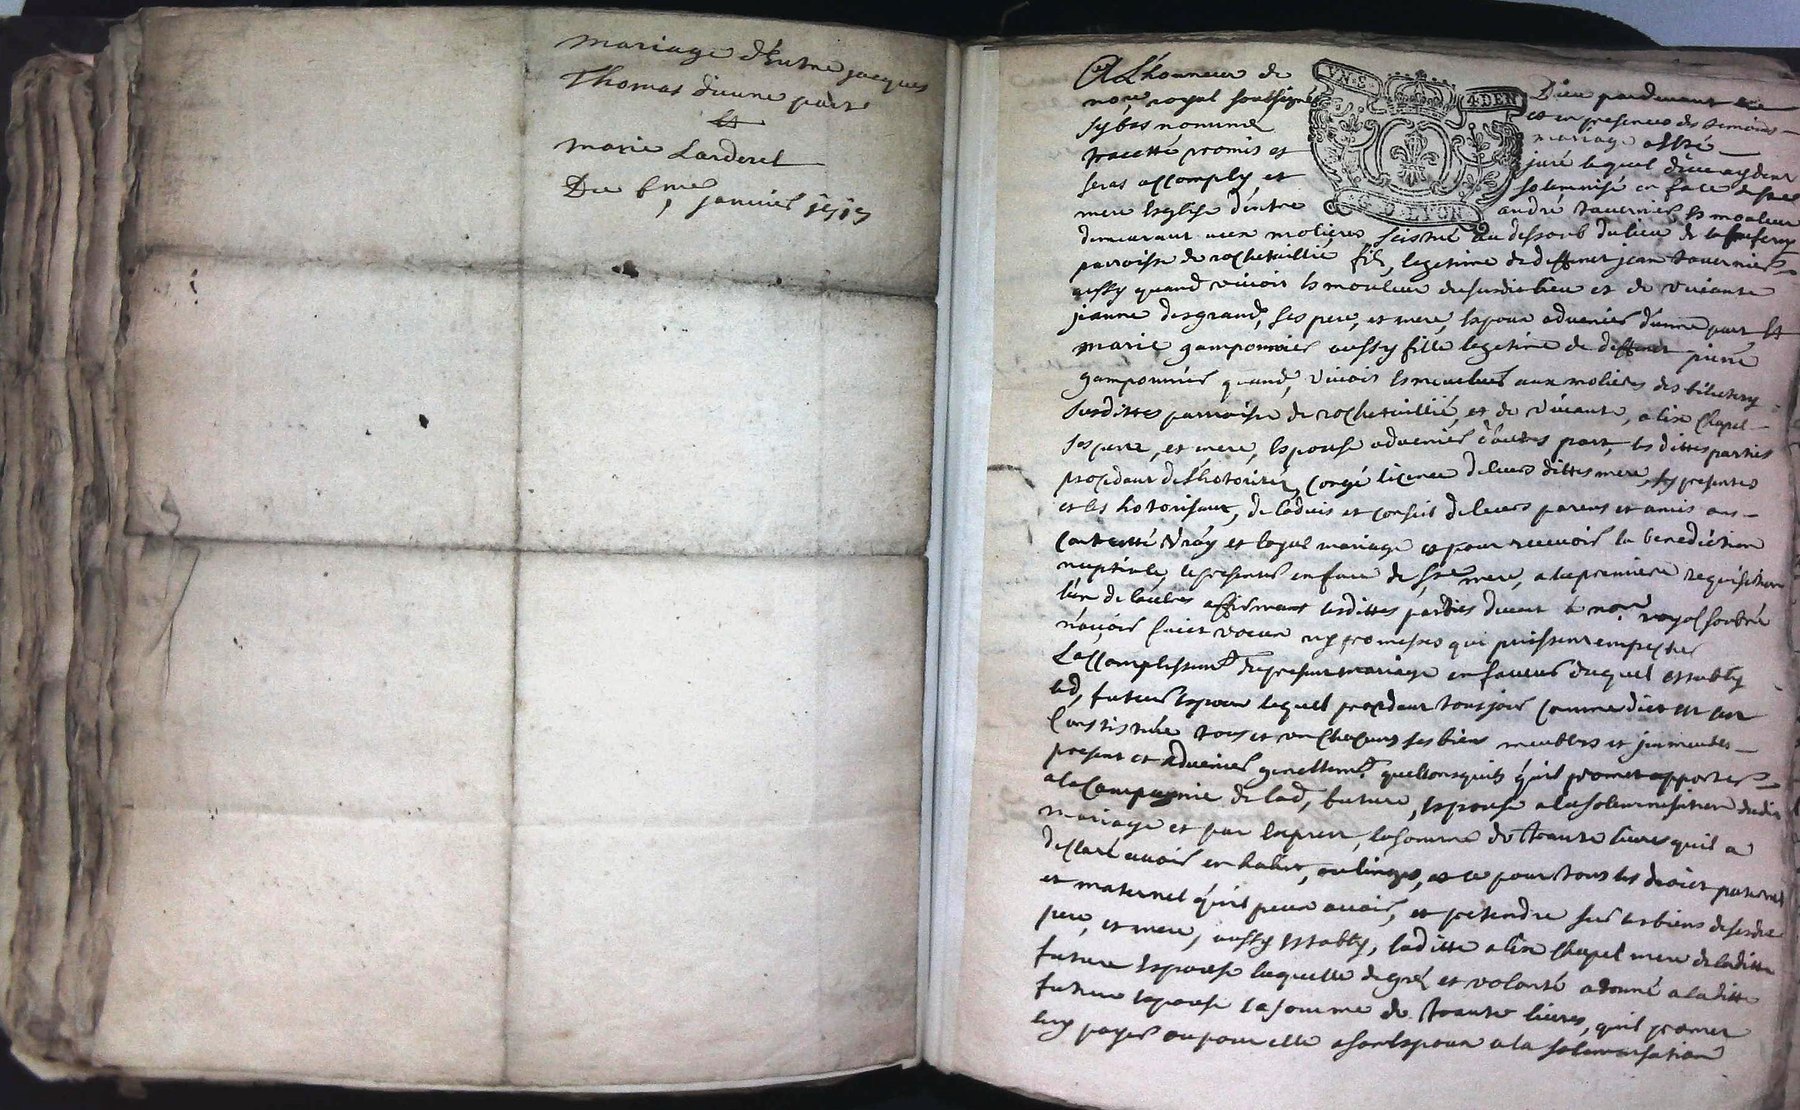 mariage d'Entre jacques
Thomas d'une part
Et
marie Larderet
Du 6me janvier
A L'honneur de Dieu pardevant le
nore royal soubsigné et en presence des temoins
sy bas nommé mariage a esté
traecté promis et juré lequel dieu aydent
seras accomply et solemnisé en face de ste
mere Esglise d'entre andré tavernier Esmouleur
demeurant aux molieres au dessoub du lieu de
parroisse de rochetaillié fils legetime de deffunct jean tavernier
aussy quand vivoit Esmouleur dusurdit lieu et de vivante
jeanne desgrand, ses pere, et mere, Espoux advenier d'une part Et
marie gamponnier aussy fille legetime de deffunct pierre
gamponnier quand, vivoit Esmouleur aux molieres des
susdittes parroisse de rochetaillié, et de vivante, alix Chapel
ses pere, et mere, Espouse advenier d'autres part, les dittes parties
proceddant de Lhotorité, congé licence de leurs dittes mere, sy presentes
et les hotorisant, de ladvis et conseil de leurs parens et amis ons
contracté vray et loyal mariage et pour recevoir la benediction
nuptiale, se presenter en face de ste mere, a la premiere requisition
l'un de lautres affirmant lesdittes parties devant le nore royal soubné
n'avoir faict voeux ny promesses qui puissent empescher
Laccomplissemt du present mariage en faveur duquel estably
led, futeur Espoux lequel proceddant tousjour comme dict est sur
Constitué tous et un chacuns ses biens meubles et jmmeubles
present et advenier generallemt quelconsquils qu'il promet apporter
a la Compagnie de lad, future, Espouse a la solemnisation dudit
mariage et par Exprest, la somme de trante livres qu'il a
declaré avoir en habit, ou linges, et ce pour tous les droict paternel
et maternel qu'il peux avoir, et pretendre sur les biens de sesdit
pere, et mere, aussy Estably, laditte alix Chapel mere de laditte
future Espouse laquelle de gré et volonté a donné a laditte
future Espouse la somme de trante livres, quil promet
luy payer ou pour elle a son Espoux a la solemnisation
VN.S.
4.DEN
G.D.LYON